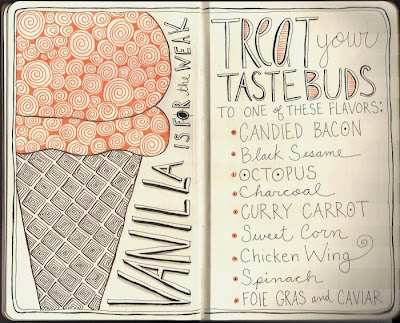 VANILLA IS FOR the WEAK
TREAT your
TASTE BUDS
TO ONE of THESE FLAVORS:
CANDIED BACON
Black Sesame
OCTOPUS
Charcoal
CURRY CARROT
Sweet Corn
Chicken Wing
Spinach
FOIE GRAS and CAVIAR